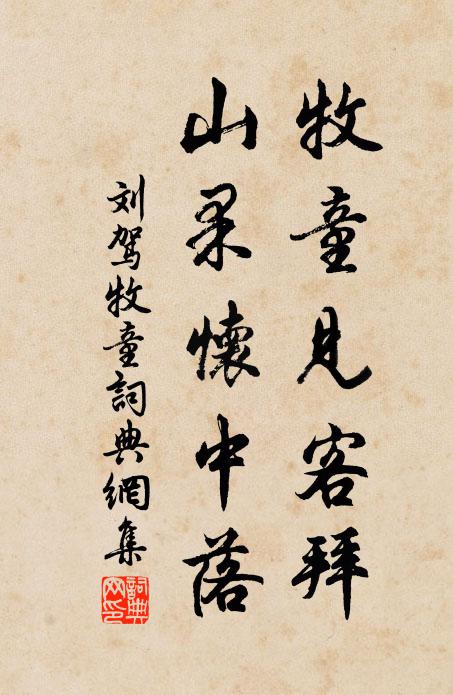 牧童見客拜
山果懷中落
刘駕牧童詞典網集
詞典網印